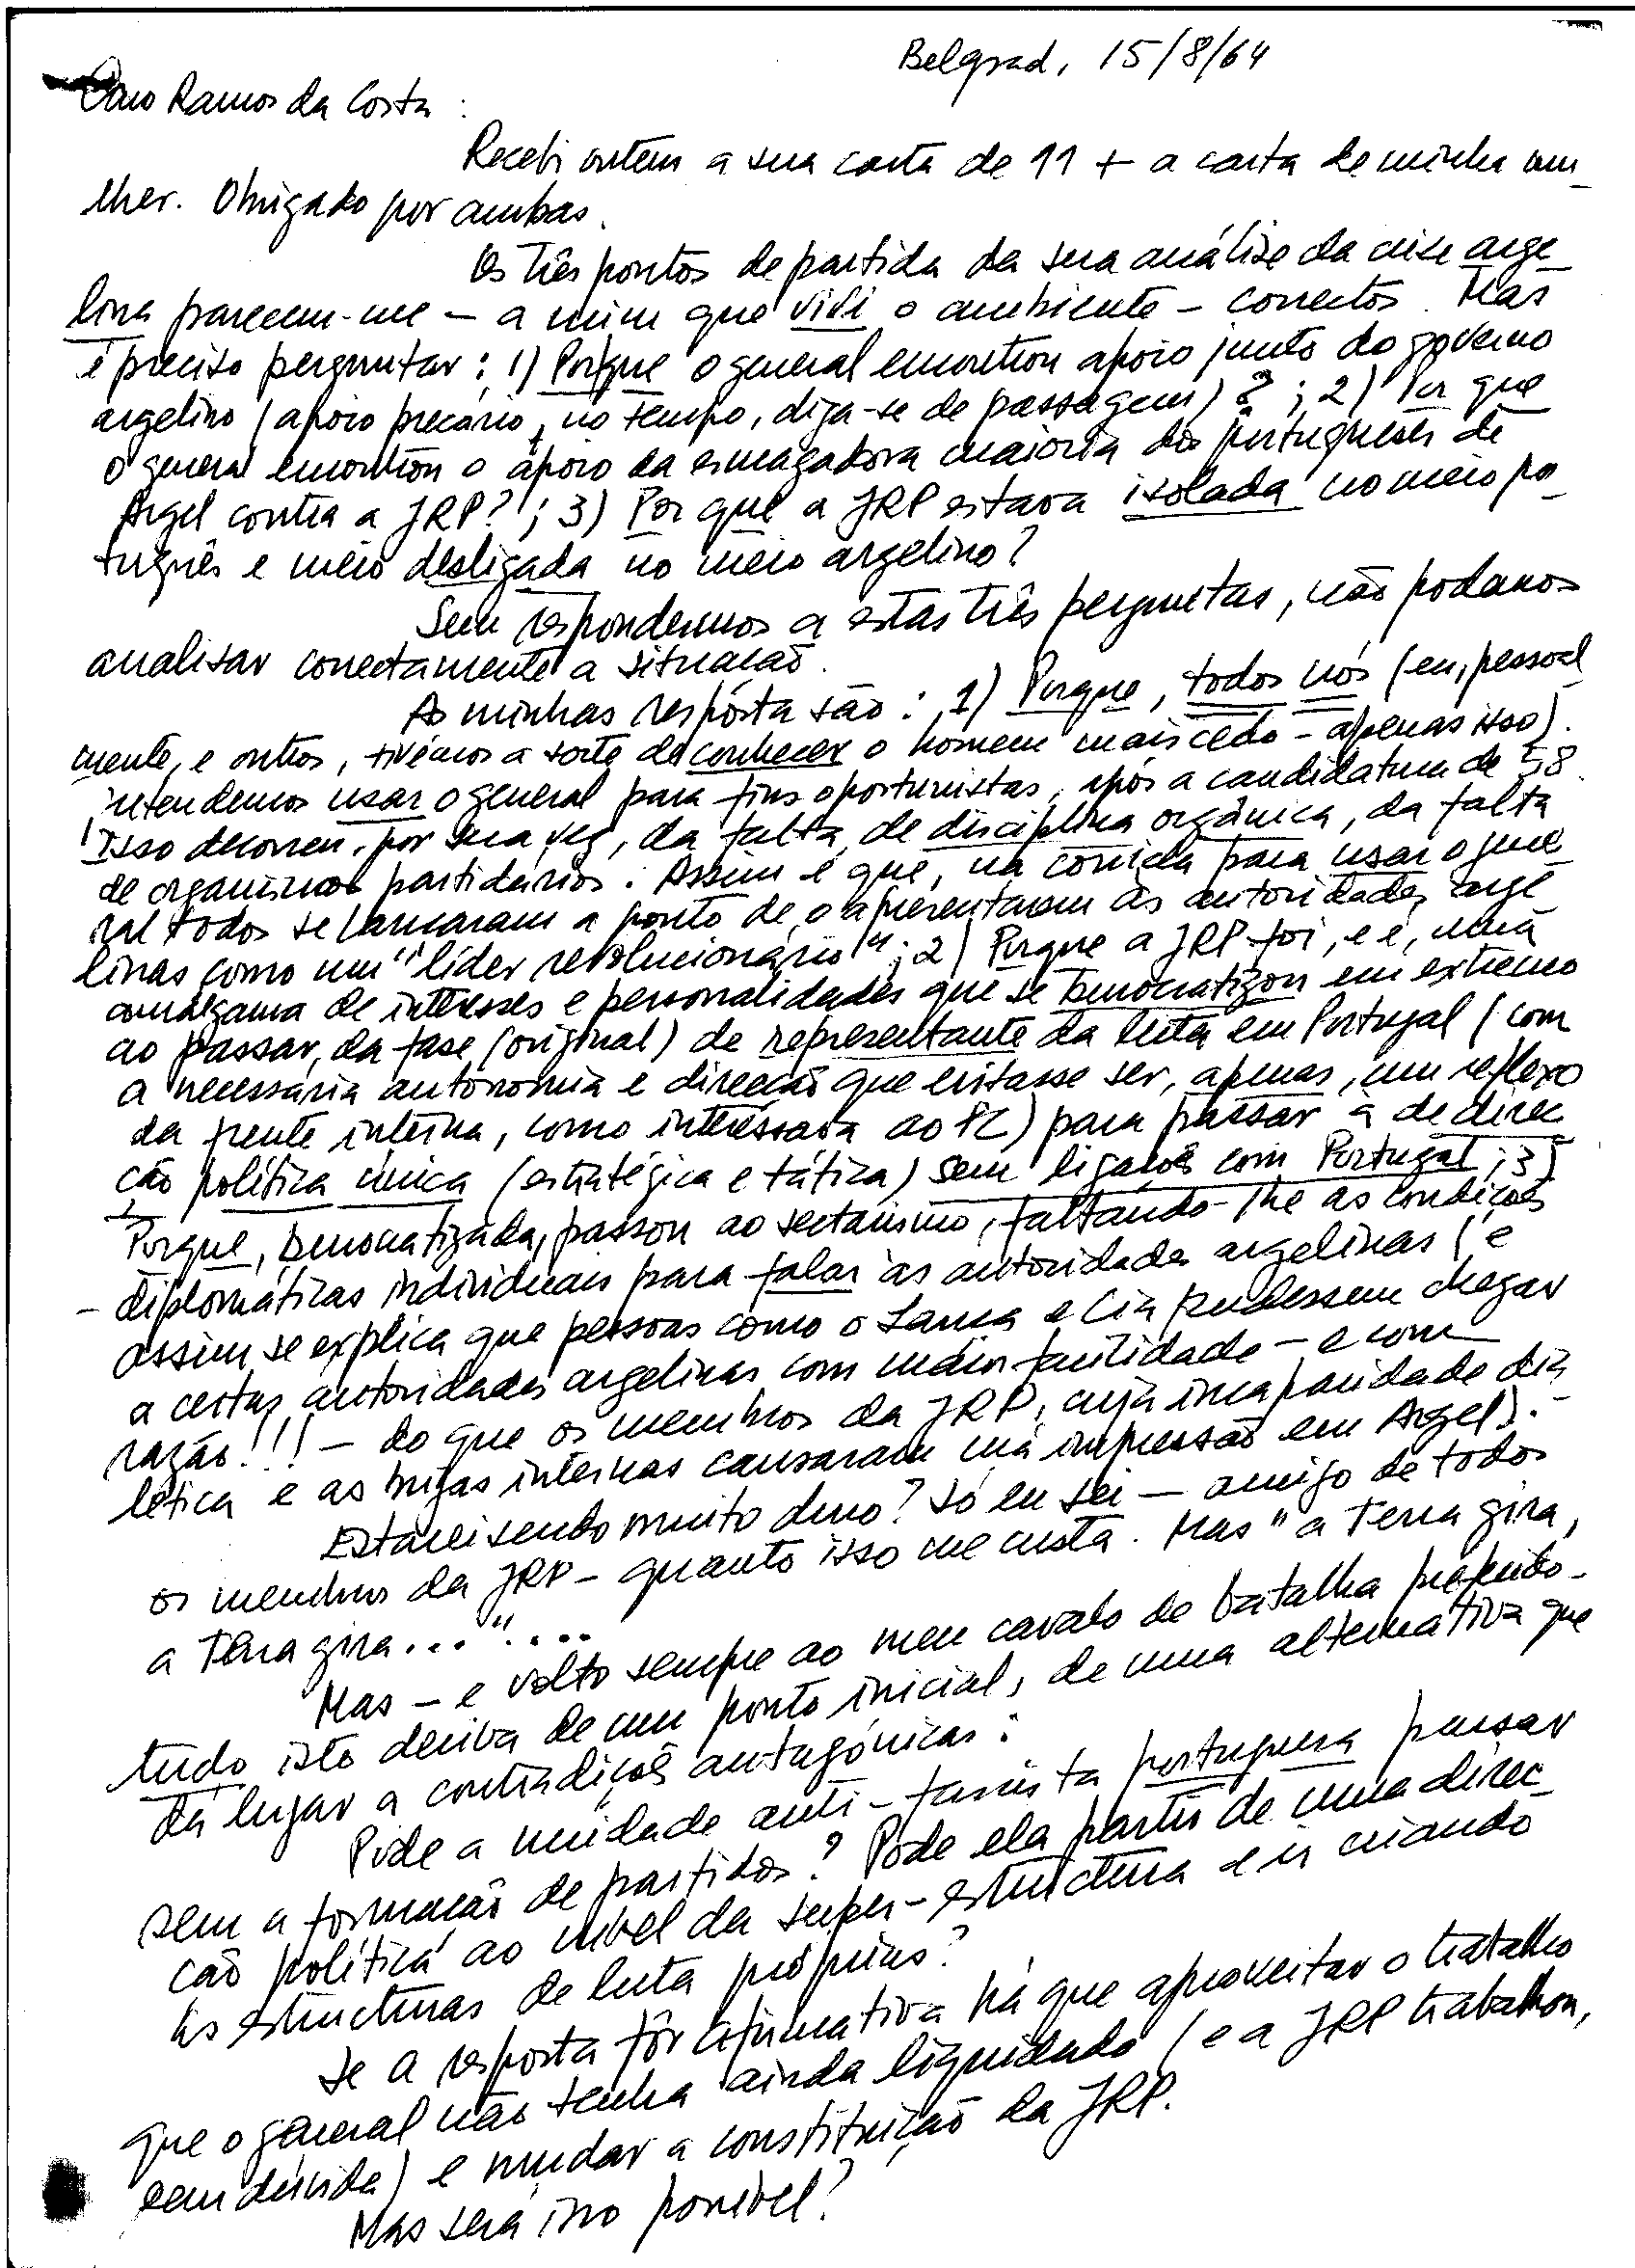 Belgrad, 15/8/64
Caro Ramos da Costa :
Recebi ontem a sua carta de 11 + a carta de minha mu_
lher. Obrigado por ambas.
Os três pontos de partida da sua análise da crise arge_
lina parecem-me - a mim que vivi o ambiente - correctos. Mas
é preciso perguntar : 1) Porque o general encontrou apoio junto do governo
argelino (apoio precário, no tempo, diga-se de passagem) ? ; 2) Por que
o general encontrou o apoio da esmagadora maioria dos portugueses de
Argel contra a JRP? ; 3) Por que a JRP estava isolada no meio po_
tuguês e meio desligada no meio argelino?
Sem respondermos a estas três perguntas, não podamos
analisar correctamente a situação.
As minhas resposta são : 1) Porque, todos nós (eu, pessoal
mente, e outros, tivémos a sorte de conhecer o homem mais cedo - apenas isso).
pretendemos usar o general para fins oportunistas, após a candidatura de 58.
Isso decorreu, por sua vez, da falta de disciplina orgânica, da falta
de organismos partidários. Assim é que, na corrida para usar o gene
ral todos se lançaram a ponto de o apresentarem às autoridades arge
linas como um "líder revolucionário" ; 2) Porque a JRP foi, e é, uma
amálgama de interesses e personalidades que se burocratizou em extremo
ao passar, da fase (original) de representante da luta em Portugal (com
a necessária autonomia e direcção que evitasse ser, apenas, um reflexo
da frente interna, como interessava ao PC) para passar à de direc
ção política única (estratégica e tática) sem ligações com Portugal ; 3)
Porque, burocratizada, passou ao sectarismo, faltando-lhe as condições
- diplomáticas individuais para falar às autoridades argelinas (e
assim se explica que pessoas como o Lança e Cia pudessem chegar
a certas autoridades argelinas com maior facilidade - e com
razão!!! - do que os membros da JRP, cuja incapacidade dia
lética e as brigas internas causaram má impressão em Argel).-
Estarei sendo muito duro? Só eu sei - amigo de todos
os membros da JRP - quanto isso me custa. Mas "a Terra gira,
a Terra gira..."....
Mas - e volto sempre ao meu cavalo de batalha preferido -
tudo isto deriva de um ponto inicial, de uma alternativa que
dá lugar a contradições antagónicas :
Pode a unidade anti-fascista portuguesa passar
sem a formação de partidos? Pode ela partir de uma direc_
ção política ao nível da super-estructura e ir criando
as estructuras de luta próprias?
Se a resposta fôr afirmativa há que aproveitar o trabalho
que o general não tenha ainda liquidado (e a JRP trabalhou,
sem dúvida) e mudar a constituição da JRP.
Mas será isso possível?